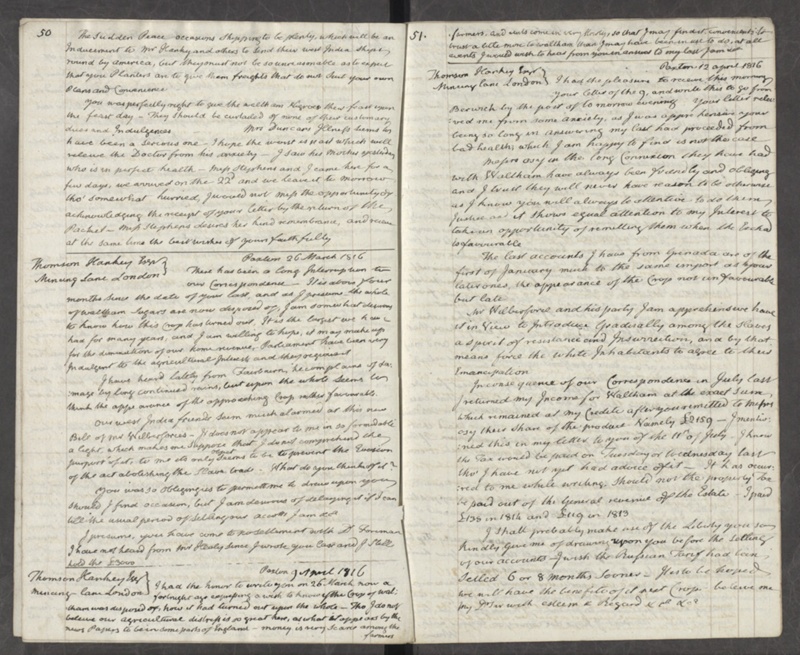 50
The Sudden Peace occasions Shipping to be plenty, which will be an
Inducement to Mr Hankey and others to send their west India Ships
round by america, but they must not be so unreasonable as to expect
that your Planters are to give them freights that do not suit your own
Plans and Convenience
You was perfectly right to give the waltham Negroes their feast upon
the feast day – They should be curtailed of none of their customary
dues and Indulgences. Mrs Duncans Illness seems to
have been a serious one – I hope the worst is past which will
relieve the Doctor from his anxiety – I saw his Mother yesterday
who is in perfect health – Miss Stephens and I came here for a
few days. we arrived on the 22d and we leave it to morrow
tho' somewhat hurried, I would not miss the opportunity of
acknowledging the receipt of your letter by the return of the
Packet – Miss Stephens desires her kind remembrance, and receive
at the same time the best wishes of yours faithfully
Thomson Hankey Esqr
Mincing Lane London
Paxton 26 March 1816
There has been a long Interruption to
our Correspondence – It is above three
months since the date of your last, and as I presume the whole
of waltham Sugars are now disposed of, I am somewhat desirous
to know how this Crop has turned out. It is the largest we have
had for many years, and I am willing to hope, it may make up
for the diminution of our home revenue, Parliament have been very
Indulgent to the agricultural Interest and they required it
I have heard lately from Fairbairn, he complains of da:
mage by long continued rains, but upon the whole seems to
think the appearance of the approaching Crop rather favourable.
Our west India friends seem much alarmed at this new
Bill of Mr Wilberforces – It does not appear to me in so formidable
a light, which makes me suppose that I do not comprehend the
purport of it, to me its only object seems to be to prevent the Evasion
of the act abolishing the Slave trade – What do you think of it?
You was so obliging as to permit me to draw upon you
should I find occasion, but I am desirous of delaying it if I can
till the usual period of settling our accots I am &c
I presume, you have come to no settlement with
I have not heard from Mr Hartz since I wrote you last and I still
hold the
Thomson Hankey Esqr
Mincing Lane London
Paxton 9 April 1816
I had the honor to write you on 26 March now a
fortnight ago expressing a wish to know if the Crop of wal:
tham was disposed of, how it had turned out upon the whole – Tho' I do not
believe our agricultural distress is so great here, as what it appears by the
news Papers to be in some parts of England – money is very scarce among the
farmers
51.
farmers, and rents come in very slowly, so that I may find it convenient to
trust a little more to waltham than I may have been in use to do, at all
events I would wish to hear from you in answer to my last I am &c
Thomson Hankey Esqr
Mincing Lane London
Paxton 12 april 1816
I had the pleasure to receive this morning
your letter of the 9, and write this to go from
Berwick by the post of to morrow evening Your letter relie
ved me from some anxiety, as I was apprehensive your
being so long in answering my last had proceeded from
bad health, which I am happy to find is not the case
Messrs osy in the long Connexion they have had
with Waltham have always been friendly and obliging
and I trust they will never have reason to be otherwise
as I know you will always be attentive to do them
Justice and it shews equal attention to my Interest to
take an opportunity of remitting them when the Exchae
is favourable
The last accounts I have from Grenada are of the
first of January much to the same import as your
later ones, the appearance of the Crops not unfavourable
but late
Mr Wilberforce and his party I am apprehensive have
it in View to Introduce Gradually among the Slaves
a spirit of resistance and Insurrection, and by that
means force the white Inhabitants to agree to their
Emancipation
In consequence of our Correspondence in July last
I returned my Income for Waltham at the exact Sum,
which remained at my Credit after you remitted to Messrs
osy their share of the product Namely £2159 – I mentio:
ned this in my letter to you of the 11th of July – I know
the Tax would be paid on Tuesday or Wednesday last
tho' I have not yet had advice of it – It has occur:
red to me while writing, Should not the property Tax
be paid out of the General revenue of the Estate – I paid
£138 in 1814 and £119 in 1813
I shall probably make use of the Liberty you so
kindly give me of drawing upon you before the settling
of our accounts – I wish the Russian Tarif had been
settled 6 or 8 months sooner – It is to be hoped
we will have the benefit of it next Crop believe me
my Dr Sir with esteem & Regard &ca &ca